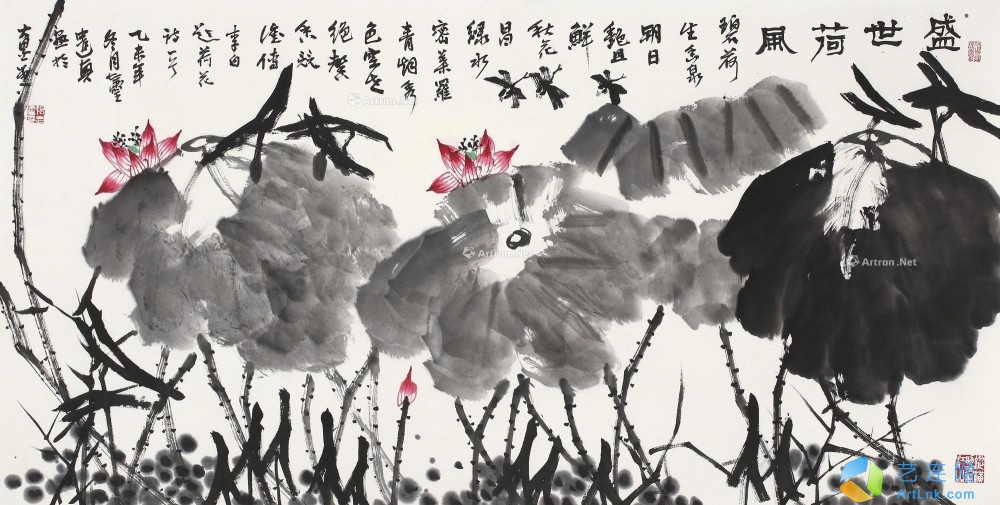 盛世荷風
碧荷
生幽泉
朝日
艷且
鮮
秋花
冒
綠水
密葉羅
青烟秀
色空世
絕馨
香竟
誰傳
李白
題荷花
詩一首
乙未年
冬月
Artron.Net
Artron.Net
Artron.Net
艺连隆
ArtLnk.com